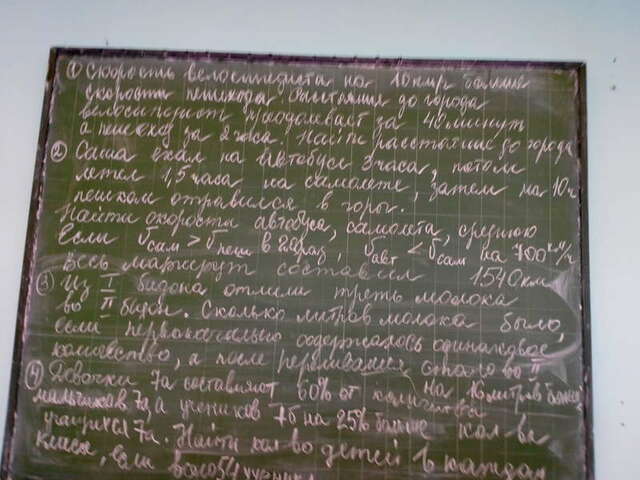 ① Скорость велосипедиста на 10 км/ч больше
скорости пешехода. Расстояние до города
велосипедист преодолевает за 40 минут
а пешеход за 2 часа. Найти расстояние до города
② Саша ехал на автобусе 3 часа, потом
летел 1,5 часа на самолете, затем на 10 ч
пешком отправился в горы.
Найти скорость автобуса, самолета, среднюю
Если V сам > V пеш в 20 раз, V авт < V сам на 700 км/ч
Весь маршрут составил 1540 км
③ Из I бидона отлили треть молока
во II бидон. Сколько литров молока было,
если первоначально содержалось одинаковое
количество, а после переливания стало во II
на 16 литров больше
④ Девочки 7а составляют 60% от количества
мальчиков 7а, а учеников 7б на 25% больше кол-ва
учащихся 7а. Найти кол-во детей в каждом
классе, если всего 54 ученика